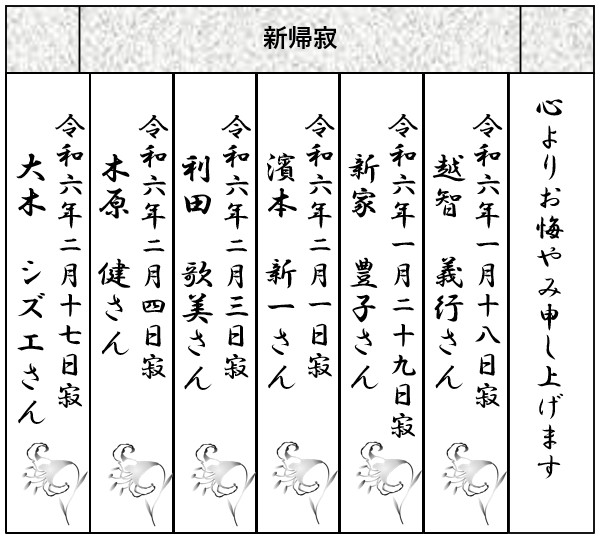 新帰寂
心よりお悔やみ申し上げます
令和六年一月十八日寂
越智 義行さん
令和六年一月二十九日寂
新家 豊子さん
令和六年二月一日寂
濱本 新一さん
令和六年二月三日寂
利田 歌美さん
令和六年二月四日寂
木原 健さん
令和六年二月十七日寂
大木 シズエさん